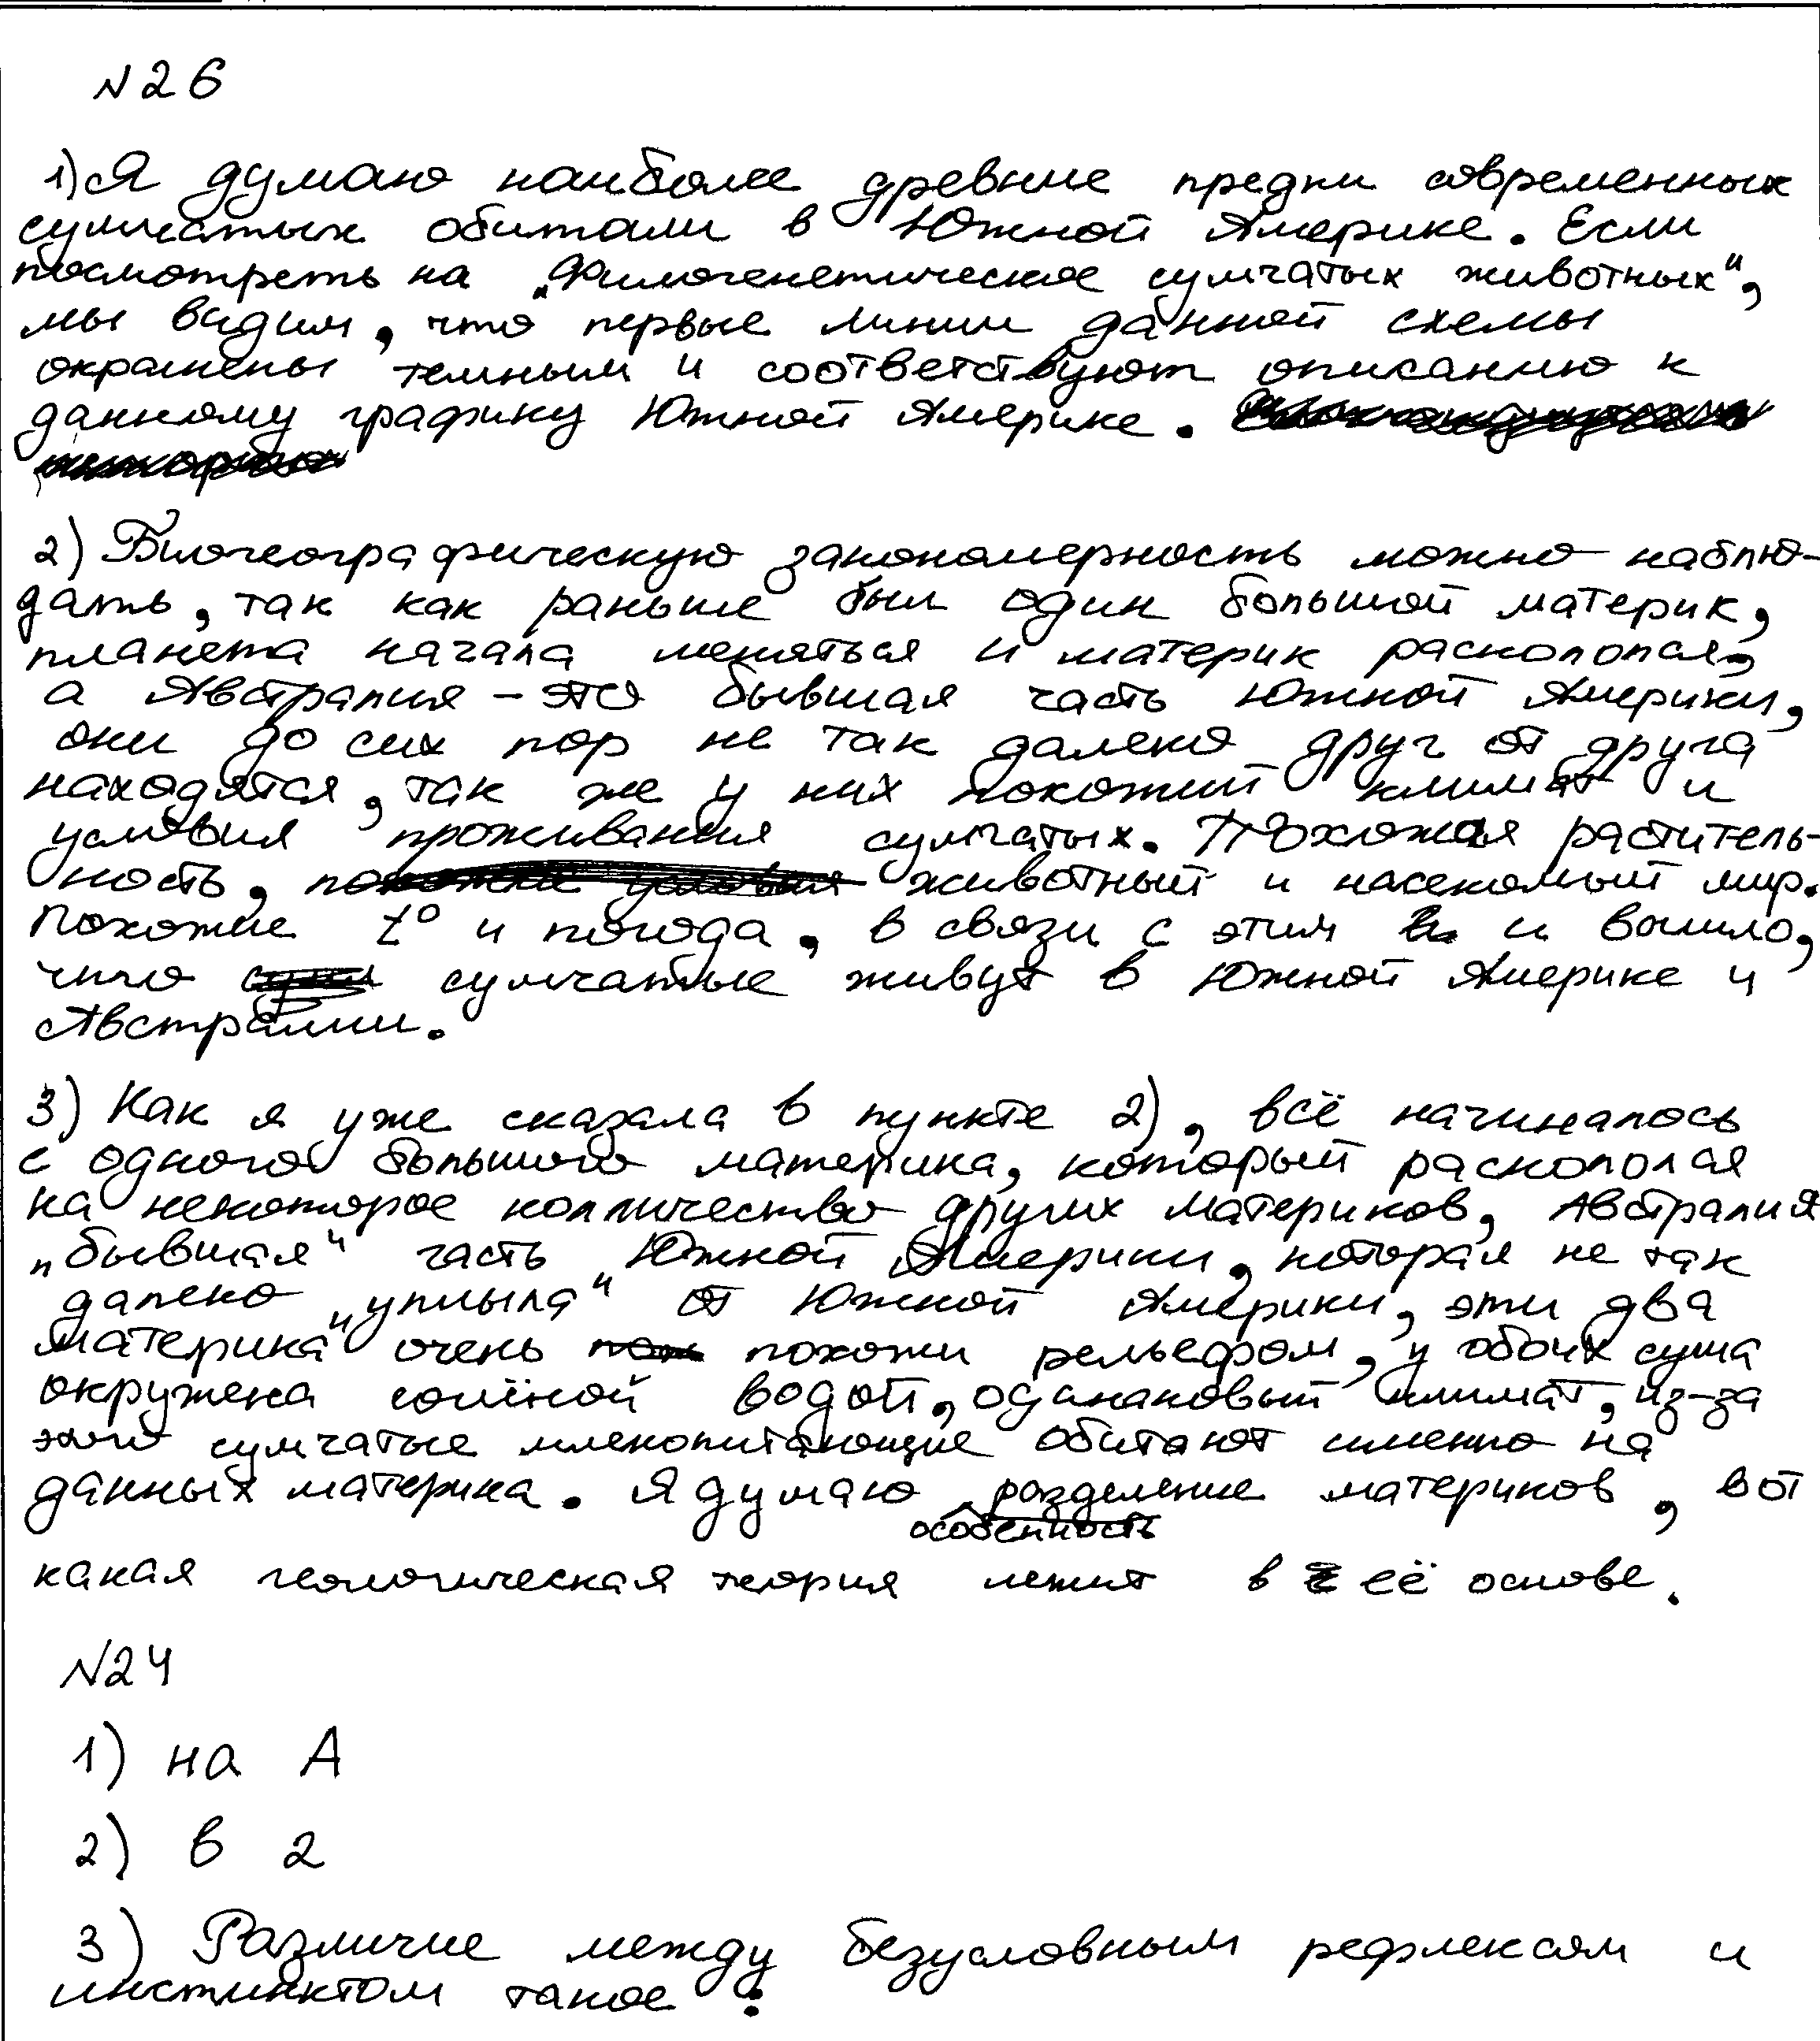 №26
1) Я думаю наиболее древние предки современных
сумчатых обитали в Южной Америке. Если
посмотреть на „Филогенетическое сумчатых животных",
мы видим, что первые линии данной схемы
окрашены темным и соответствуют описанию к
данному графику Южной Америке.
2) Биогеографическую закономерность можно наблю-
дать, так как раньше был один большой материк,
планета начала меняться и материк раскололся,
а Австралия – это бывшая часть Южной Америки,
они до сих пор не так далеко друг от друга
находятся, так же у них похожий климат и
условия проживания сумчатых. Похожая раститель-
ность, похожие условия животный и насекомый мир.
Похожие t° и погода, в связи с этим и вышло,
что сумчатые живут в Южной Америке и
Австралии.
3) Как я уже сказала в пункте 2), всё начиналось
с одного большого материка, который раскололся
на некоторое колличество других материков, Австралия
„бывшая" часть Южной Америки, которая не так
далеко „уплыла" от Южной Америки, эти два
материка очень похожи рельефом, у обоих суша
окружена солёной водой, одинаковый климат, из-за
этого сумчатые млекопитающие обитают именно на
данных материка. Я думаю разделение материков, вот
особенность
какая геологическая теория лежит в её основе.
№24
1) на А
2) в 2
3) Различие между безусловным рефлексом и
инстинктом такое: